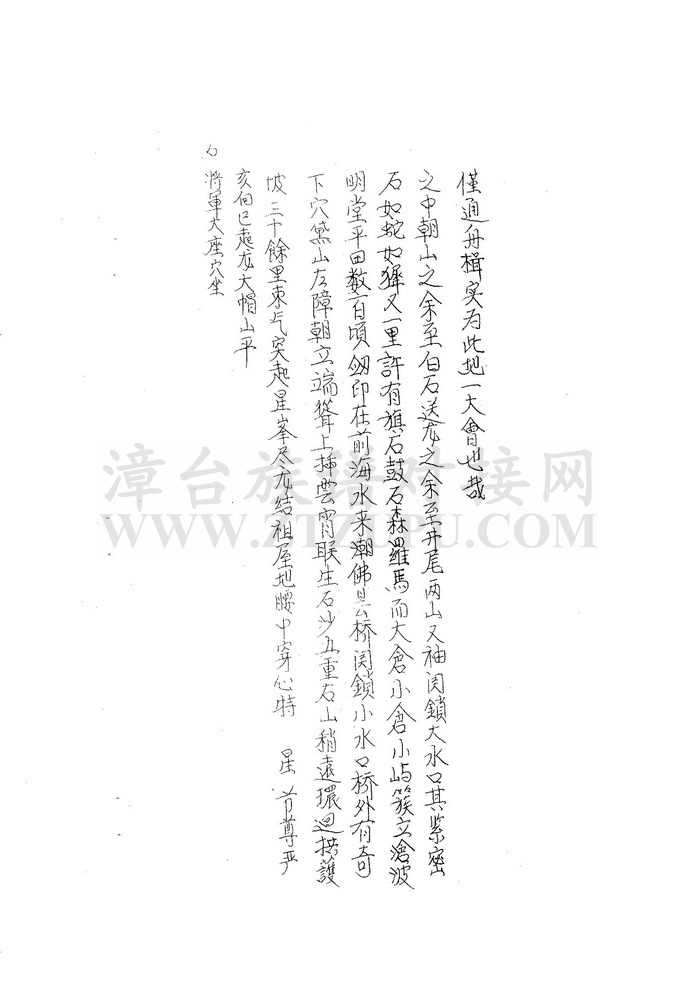 将軍大座穴坐
亥向巳起龙大帽山平
坡三十餘里束气突起星峯尺龙结祖屋地腰中穿心特 星 尊严
下穴黛山左障朝立端聳上插雲霄联生石沙五重右山稍遠環迴拱護
明堂平田数百頃劔印在前海水来潮佛昙桥関鎖小水口桥外有奇
石如蛇如犀又一里許有旗石鼓石森羅馬而大倉小倉小屿簇立滄波
之中朝山之余至白石送龙之余至井尾两山又袖関鎖大水口其紧密
僅通舟楫实为此地一大會也哉
漳台族谱对接网
WWW.ZTZUPU.COM